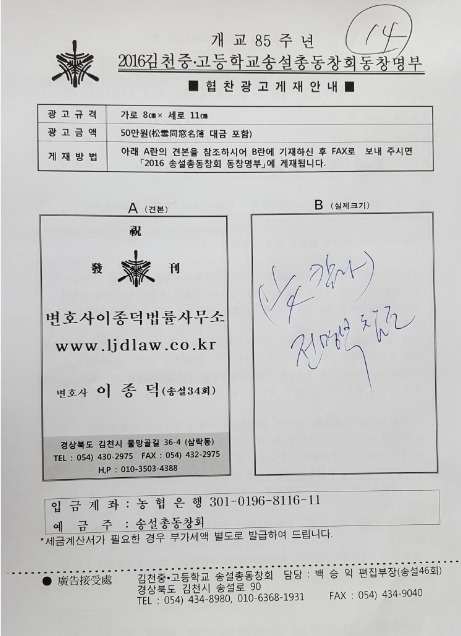 14
개교 85주년
2016김천중·고등학교송설총동창회동창명부
■ 협찬광고게재안내 ■
광고규격 가로 8㎝× 세로 11㎝
광고금액 50만원(松雪同窓名簿 대금 포함)
게재방법 아래 A란의 견본을 참조하시어 B란에 기재하신 후 FAX로 보내 주시면
「2016 송설총동창회 동창명부」에 게재됩니다.
A (견본)
祝
發 刊
변호사이종덕법률사무소
www.ljdlaw.co.kr
변호사 이종덕(송설34회)
경상북도 김천시 물망골길 36-4 (삼락동)
TEL : 054) 430-2975 FAX : 054) 432-2975
H,P : 010-3503-4388
B (실제크기)
(1/4
입금계좌 : 농협은행 301-0196-8116-11
예 금 주 : 송설총동창회
*세금계산서가 필요한 경우 부가세액 별도로 발급하여 드립니다.
● 廣告接受處 김천중·고등학교 송설총동창회 담당 : 백승익 편집부장(송설46회)
경상북도 김천시 송설로 90
TEL : 054) 434-8980, 010-6368-1931 FAX : 054) 434-9040